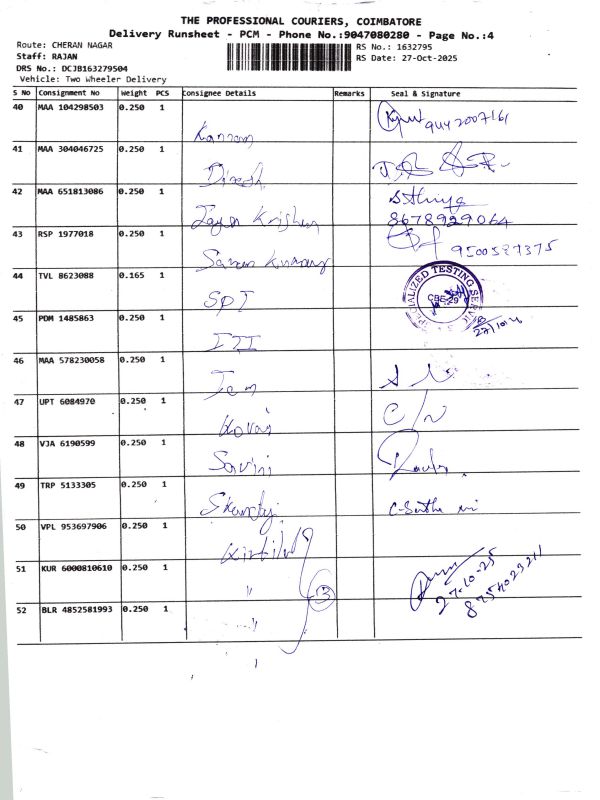 THE PROFESSIONAL COURIERS, COIMBATORE
Delivery Runsheet - PCM - Phone No.:9047080280 - Page No.:4
Route: CHERAN NAGAR
RS No.: 1632795
Staff: RAJAN
RS Date: 27-Oct-2025
DRS No.: DCJB163279504
Vehicle: Two Wheeler Delivery
S No Consignment No Weight PCS Consignee Details Remarks Seal & Signature
40 MAA 104298503 0.250 1 Kannan 9442007161
41 MAA 304046725 0.250 1 Dinesh
42 MAA 651813086 0.250 1 Jayan Krishnan 8678929064
43 RSP 1977018 0.250 1 Saran Kumar 9500587375
44 TVL 8623088 0.165 1 SPI SPECIALIZED TESTING SERVIC CBE-29
45 PDM 1485863 0.250 1 ITI
46 MAA 578230058 0.250 1 Jem
47 UPT 6084970 0.250 1 Kovai
48 VJA 6190599 0.250 1 Savini
49 TRP 5133305 0.250 1
50 VPL 953697906 0.250 1
51 KUR 6000810610 0.250 1 " 27-10-25
52 BLR 4852581993 0.250 1 " 3